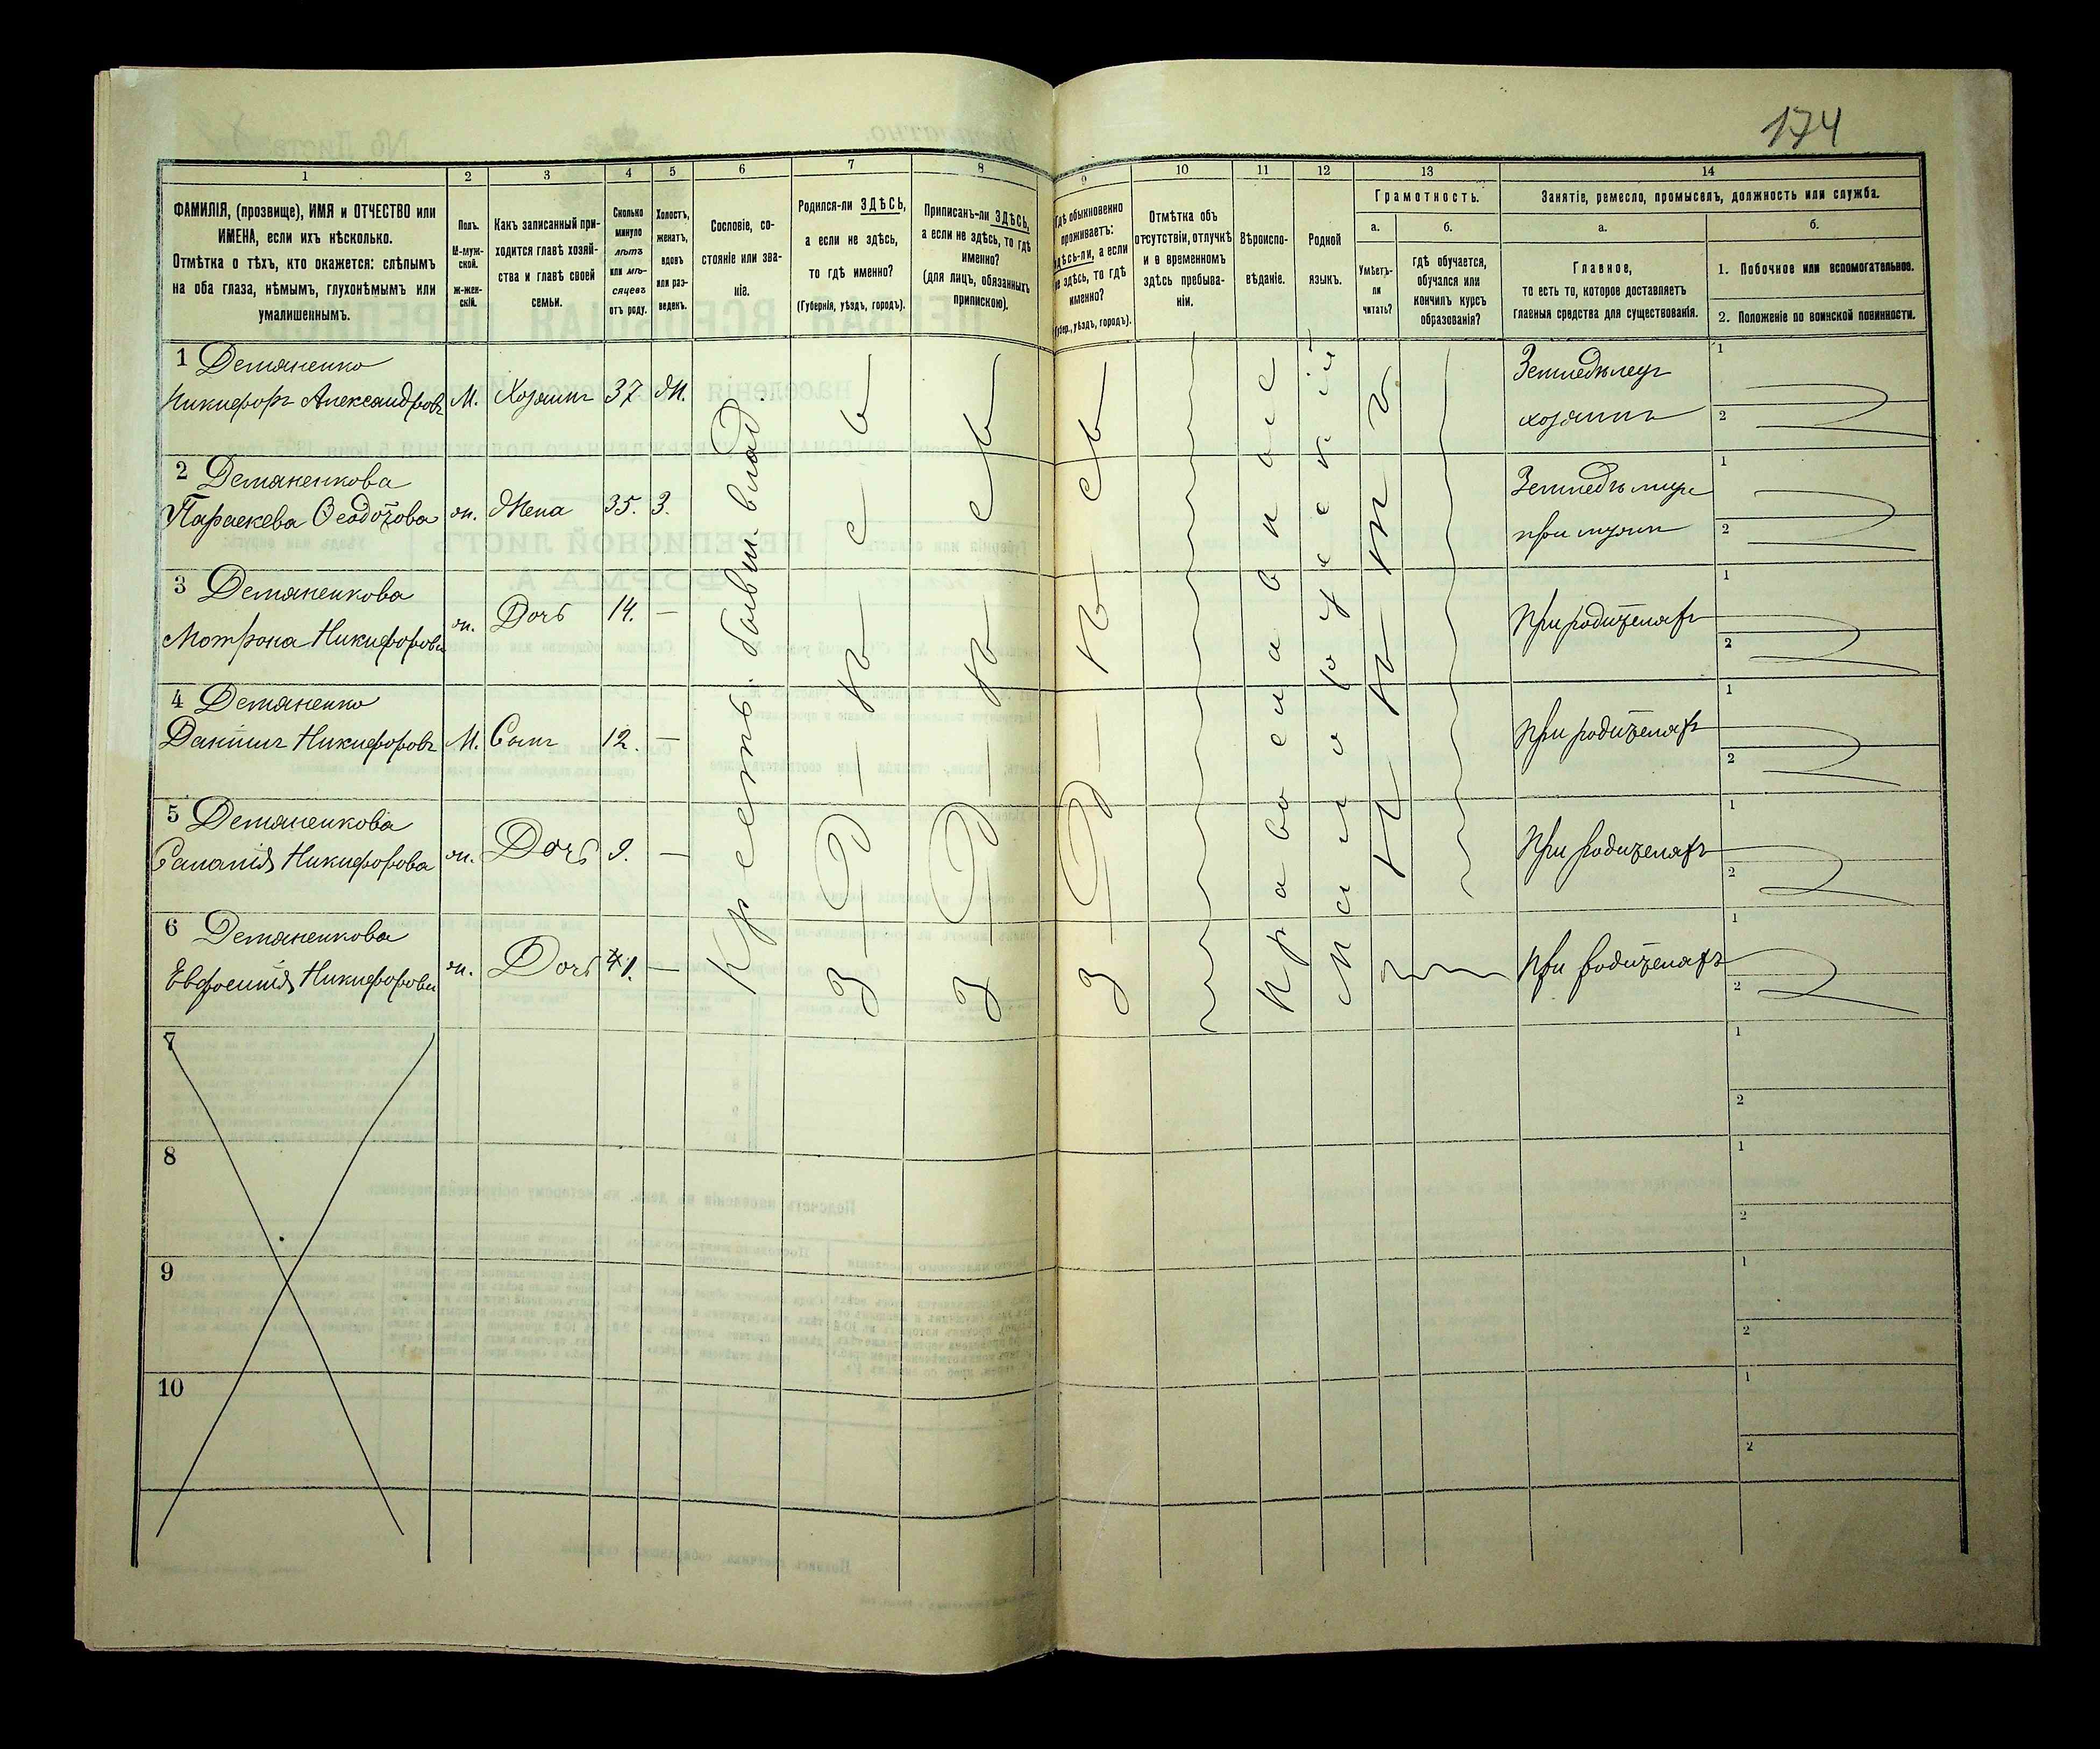 174
1 2 3 4 5 6 7 8 9 10 11 12 13 14
ФАМИЛІЯ, (прозвище), ИМЯ и ОТЧЕСТВО или
ИМЕНА, если ихъ нѣсколько.
Отмѣтка о тѣхъ, кто окажется: слѣпымъ
на оба глаза, нѣмымъ, глухонѣмымъ или
умалишеннымъ.
Полъ.
М-муж-
ской.
Ж-жен-
скій.
Какъ записанный при-
ходится главѣ хозяй-
ства и главѣ своей
семьи.
Сколько
минуло
лѣтъ
или мѣ-
сяцевъ
отъ роду.
Холостъ,
женатъ,
вдовъ
или раз-
веденъ.
Сословіе, со-
стояніе или зва-
ніе.
Родился-ли ЗДѢСЬ,
а если не здѣсь,
то гдѣ именно?
(Губернія, уѣздъ, городъ).
Приписанъ-ли ЗДѢСЬ,
а если не здѣсь, то гдѣ
именно?
(для лицъ, обязанныхъ
припискою).
Гдѣ обыкновенно
проживаетъ:
здѣсь-ли, а если
не здѣсь, то гдѣ
именно?
(Губер., уѣздъ, городъ).
Отмѣтка объ
отсутствіи, отлучкѣ
и о временномъ
здѣсь пребыва-
ніи.
Вѣроиспо-
вѣданіе.
Родной
языкъ.
Грамотность.
а.
Умѣетъ-
ли
читать?
б.
гдѣ обучается,
обучался или
кончилъ курсъ
образованія?
Занятіе, ремесло, промыселъ, должность или служба.
а.
Главное,
то есть то, которое доставляетъ
главныя средства для существованія.
б.
1. Побочное или вспомогательное.
2. Положеніе по воинской повинности.
1 Демяненко
Никифоръ Александровъ М. Хозяинъ 37 Ж. Земледѣлецъ 1
хозяинъ 2
2 Демяненкова
Параскева Ѳеодотова ж. Жена 35. З. 1
при мужѣ 2
3 Демяненкова
Мотрона Никифорова ж. Дочь 14. — При родителяхъ 1
2
4 Демяненко
Даніилъ Никифоровъ М. Сынъ 12. — При родителяхъ 1
2
5 Демяненкова
Никифорова ж. Дочь 9. — При родителяхъ 1
2
6 Демяненкова
Евфосинія Никифорова ж. Дочь 1. — При родителяхъ 1
2
Крестьян. бывш. влад.
здѣсь
здѣсь
здѣсь
Православное
Малорусскій
нѣтъ
7 1
2
8 1
2
9 1
2
10 1
2